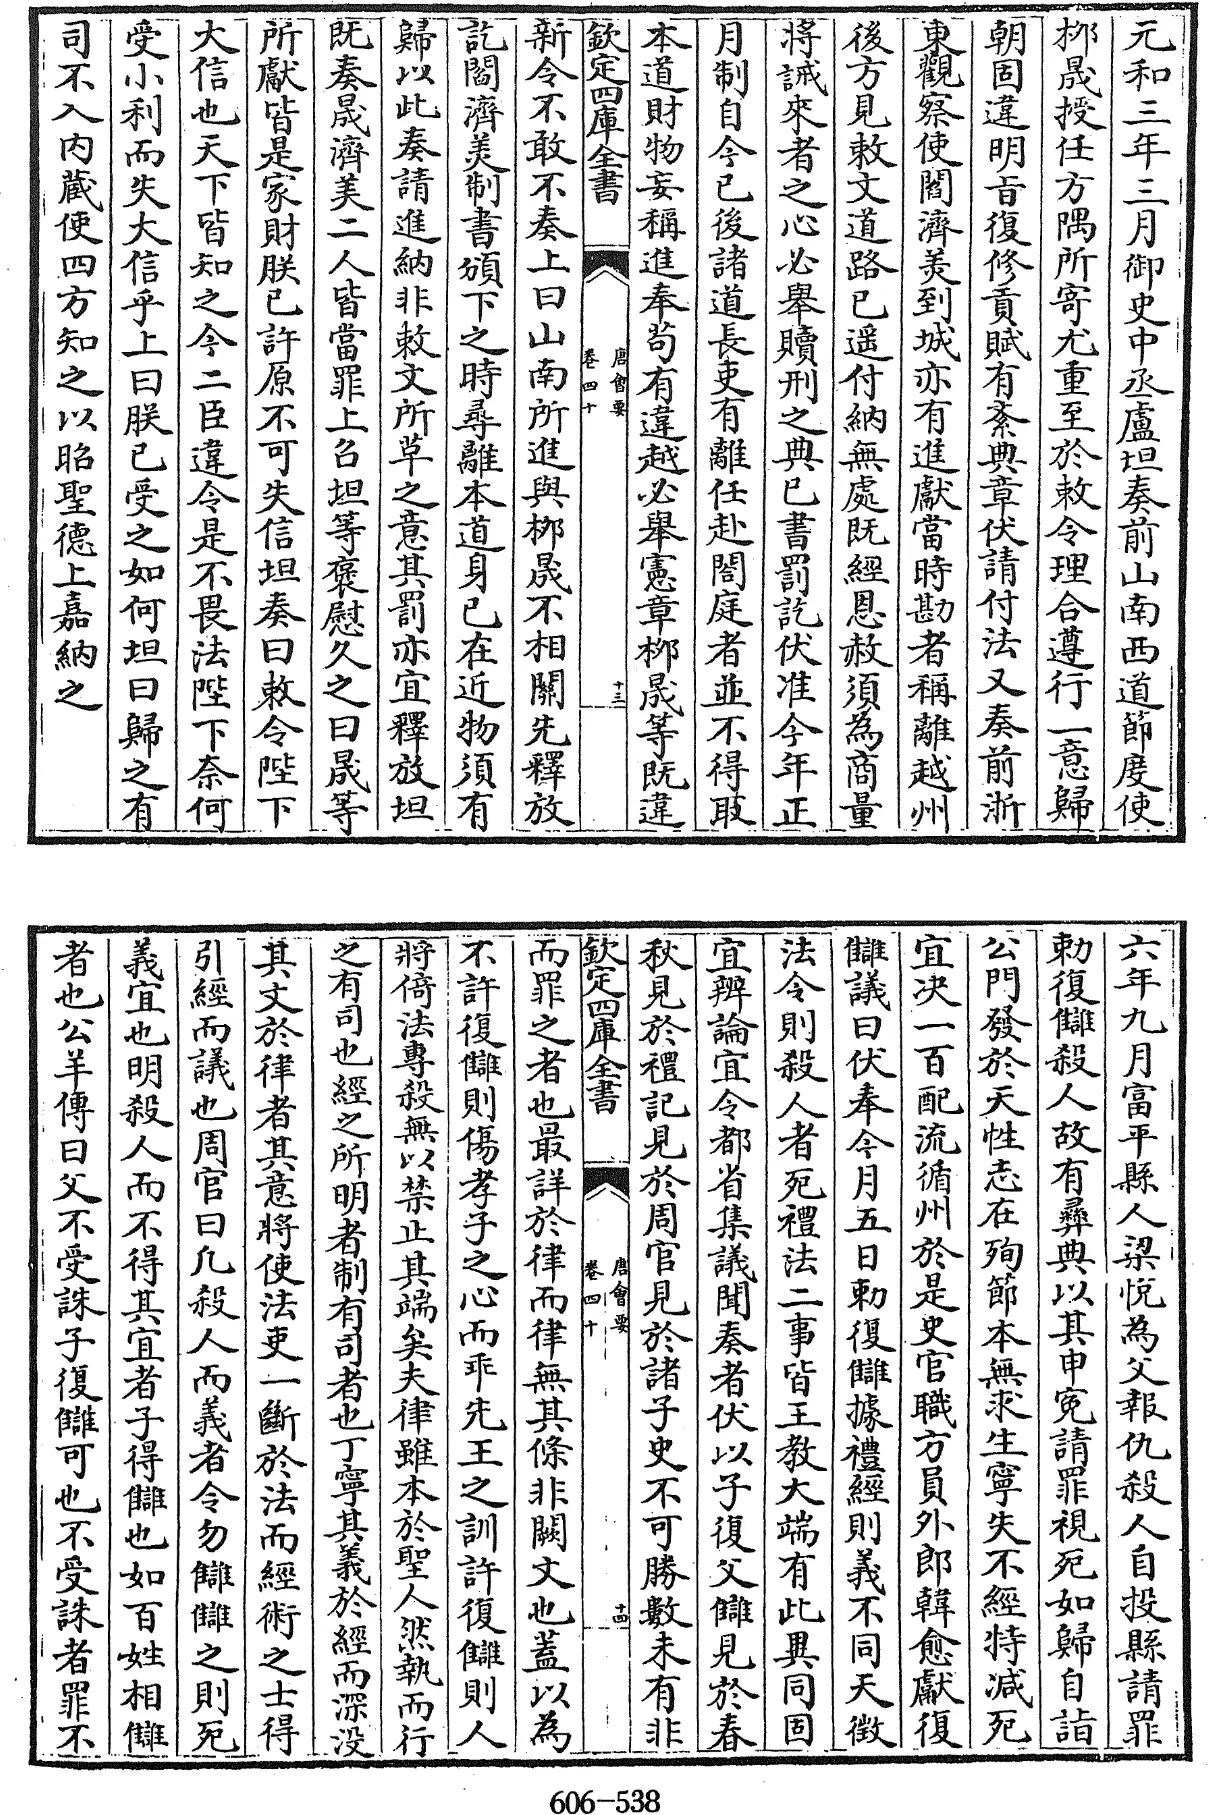 元和三年三月御史中丞盧坦奏前山南西道節度使
栁晟授任方隅所寄尤重至於敕令理合遵行一意歸
朝固違明㫖復修貢賦有紊典章伏請付法又奏前浙
東觀察使閻濟美到城亦有進獻當時勘者稱離越州
後方見敕文道路已遥付納無處既經恩赦須為商量
將誡來者之心必舉贖刑之典已書罰訖伏准今年正
月制自今已後諸道長吏有離任赴闕庭者並不得取
本道財物妄稱進奉苟有違越必舉憲章栁晟等既違
欽定四庫全書
唐會要
卷四十
十三
新令不敢不奏上曰山南所進與栁晟不相關先釋放
訖閻濟美制書頒下之時尋離本道身已在近物須有
歸以此奏請進納非敕文所草之意其罰亦宜釋放坦
既奏晟濟美二人皆當罪上召坦等褒慰久之曰晟等
所獻皆是家財朕已許原不可失信坦奏曰敕令陛下
大信也天下皆知之今二臣違令是不畏法陛下奈何
受小利而失大信乎上曰朕已受之如何坦曰歸之有
司不入内藏使四方知之以昭聖德上嘉納之
六年九月富平縣人梁悦為父報仇殺人自投縣請罪
勅復讎殺人故有彛典以其申寃請罪視死如歸自詣
公門發於天性志在殉節本無求生寧失不經特减死
宜决一百配流循州於是史官職方員外郎韓愈獻復
讎議曰伏奉今月五日勅復讎據禮經則義不同天徵
法令則殺人者死禮法二事皆王教大端有此異同固
宜辨論宜令都省集議聞奏者伏以子復父讎見於春
秋見於禮記見於周官見於諸子史不可勝數未有非
欽定四庫全書
唐會要
卷四十
十四
而罪之者也最詳於律而律無其條非闕文也蓋以為
不許復讎則傷孝子之心而乖先王之訓許復讎則人
將倚法專殺無以禁止其端矣夫律雖本於聖人然執而行
之有司也經之所明者制有司者也丁寧其義於經而深没
其文於律者其意將使法吏一斷於法而經術之士得
引經而議也周官曰凡殺人而義者令勿讎讎之則死
義宜也明殺人而不得其宜者子得讎也如百姓相讎
者也公羊傳曰父不受誅子復讎可也不受誅者罪不
606-538